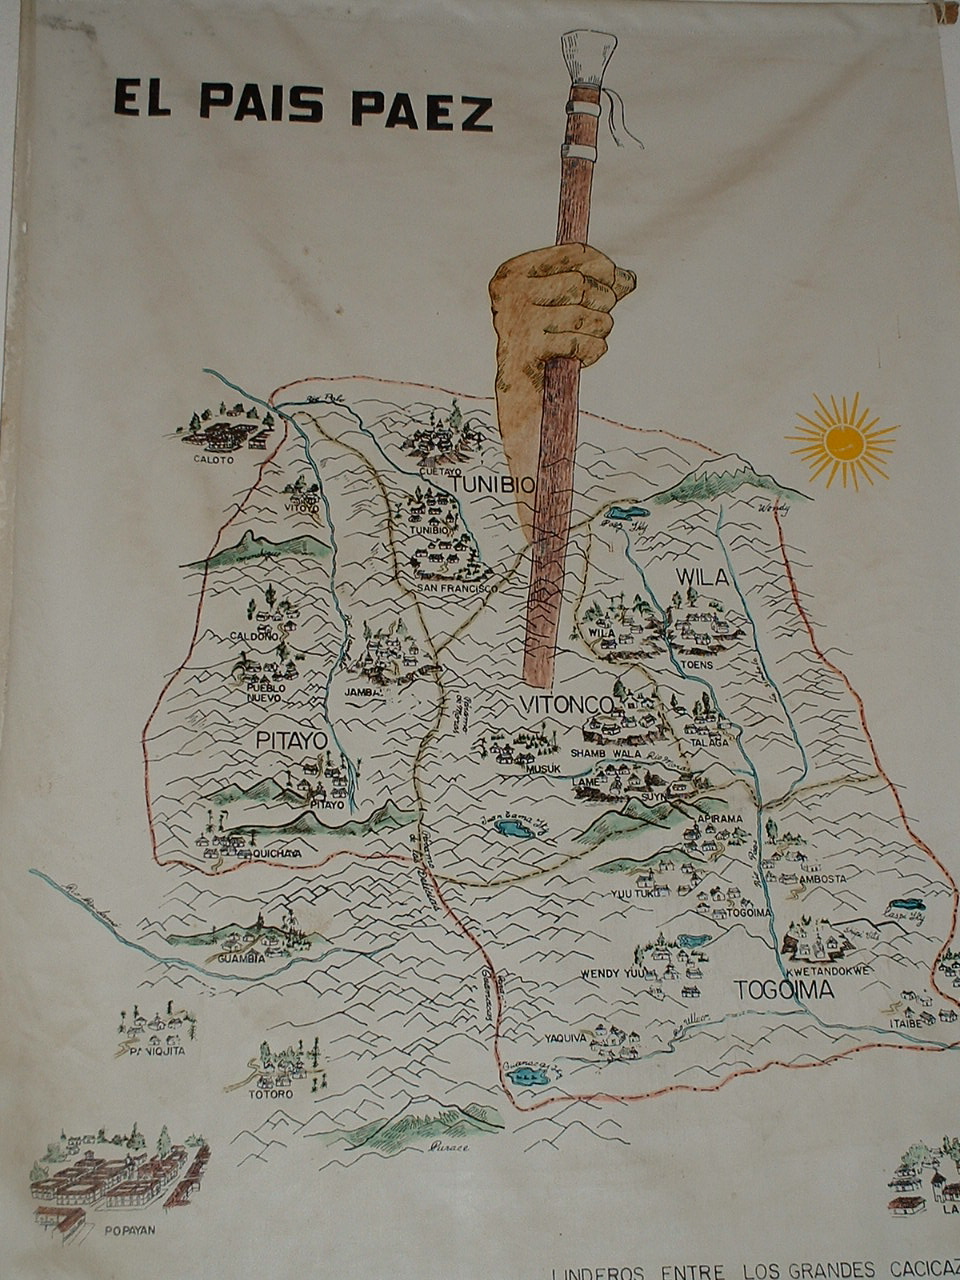 EL PAIS PAEZ
CALOTO
CUETAYO
TUNIBIO
VITOYO
TUNIBIO
SAN FRANCISCO
Wendy
WILA
WILA
TOENS
CALDONO
PUEBLO
NUEVO
JAMBA
VITONCO
PITAYO
TALAGA
SHAMB WALA
MUSUK
LAME
SUYN
PITAYO
APIRAMA
QUICHAYA
AMBOSTA
YUU TUKU
TOGOIMA
GUAMBIA
WENDY YUU
KWETANDOKWE
TOGOIMA
ITAIBE
YAQUIVA
PANIQUITA
TOTORO
Purace
POPAYAN
LA
LINDEROS ENTRE LOS GRANDES CACICAZ